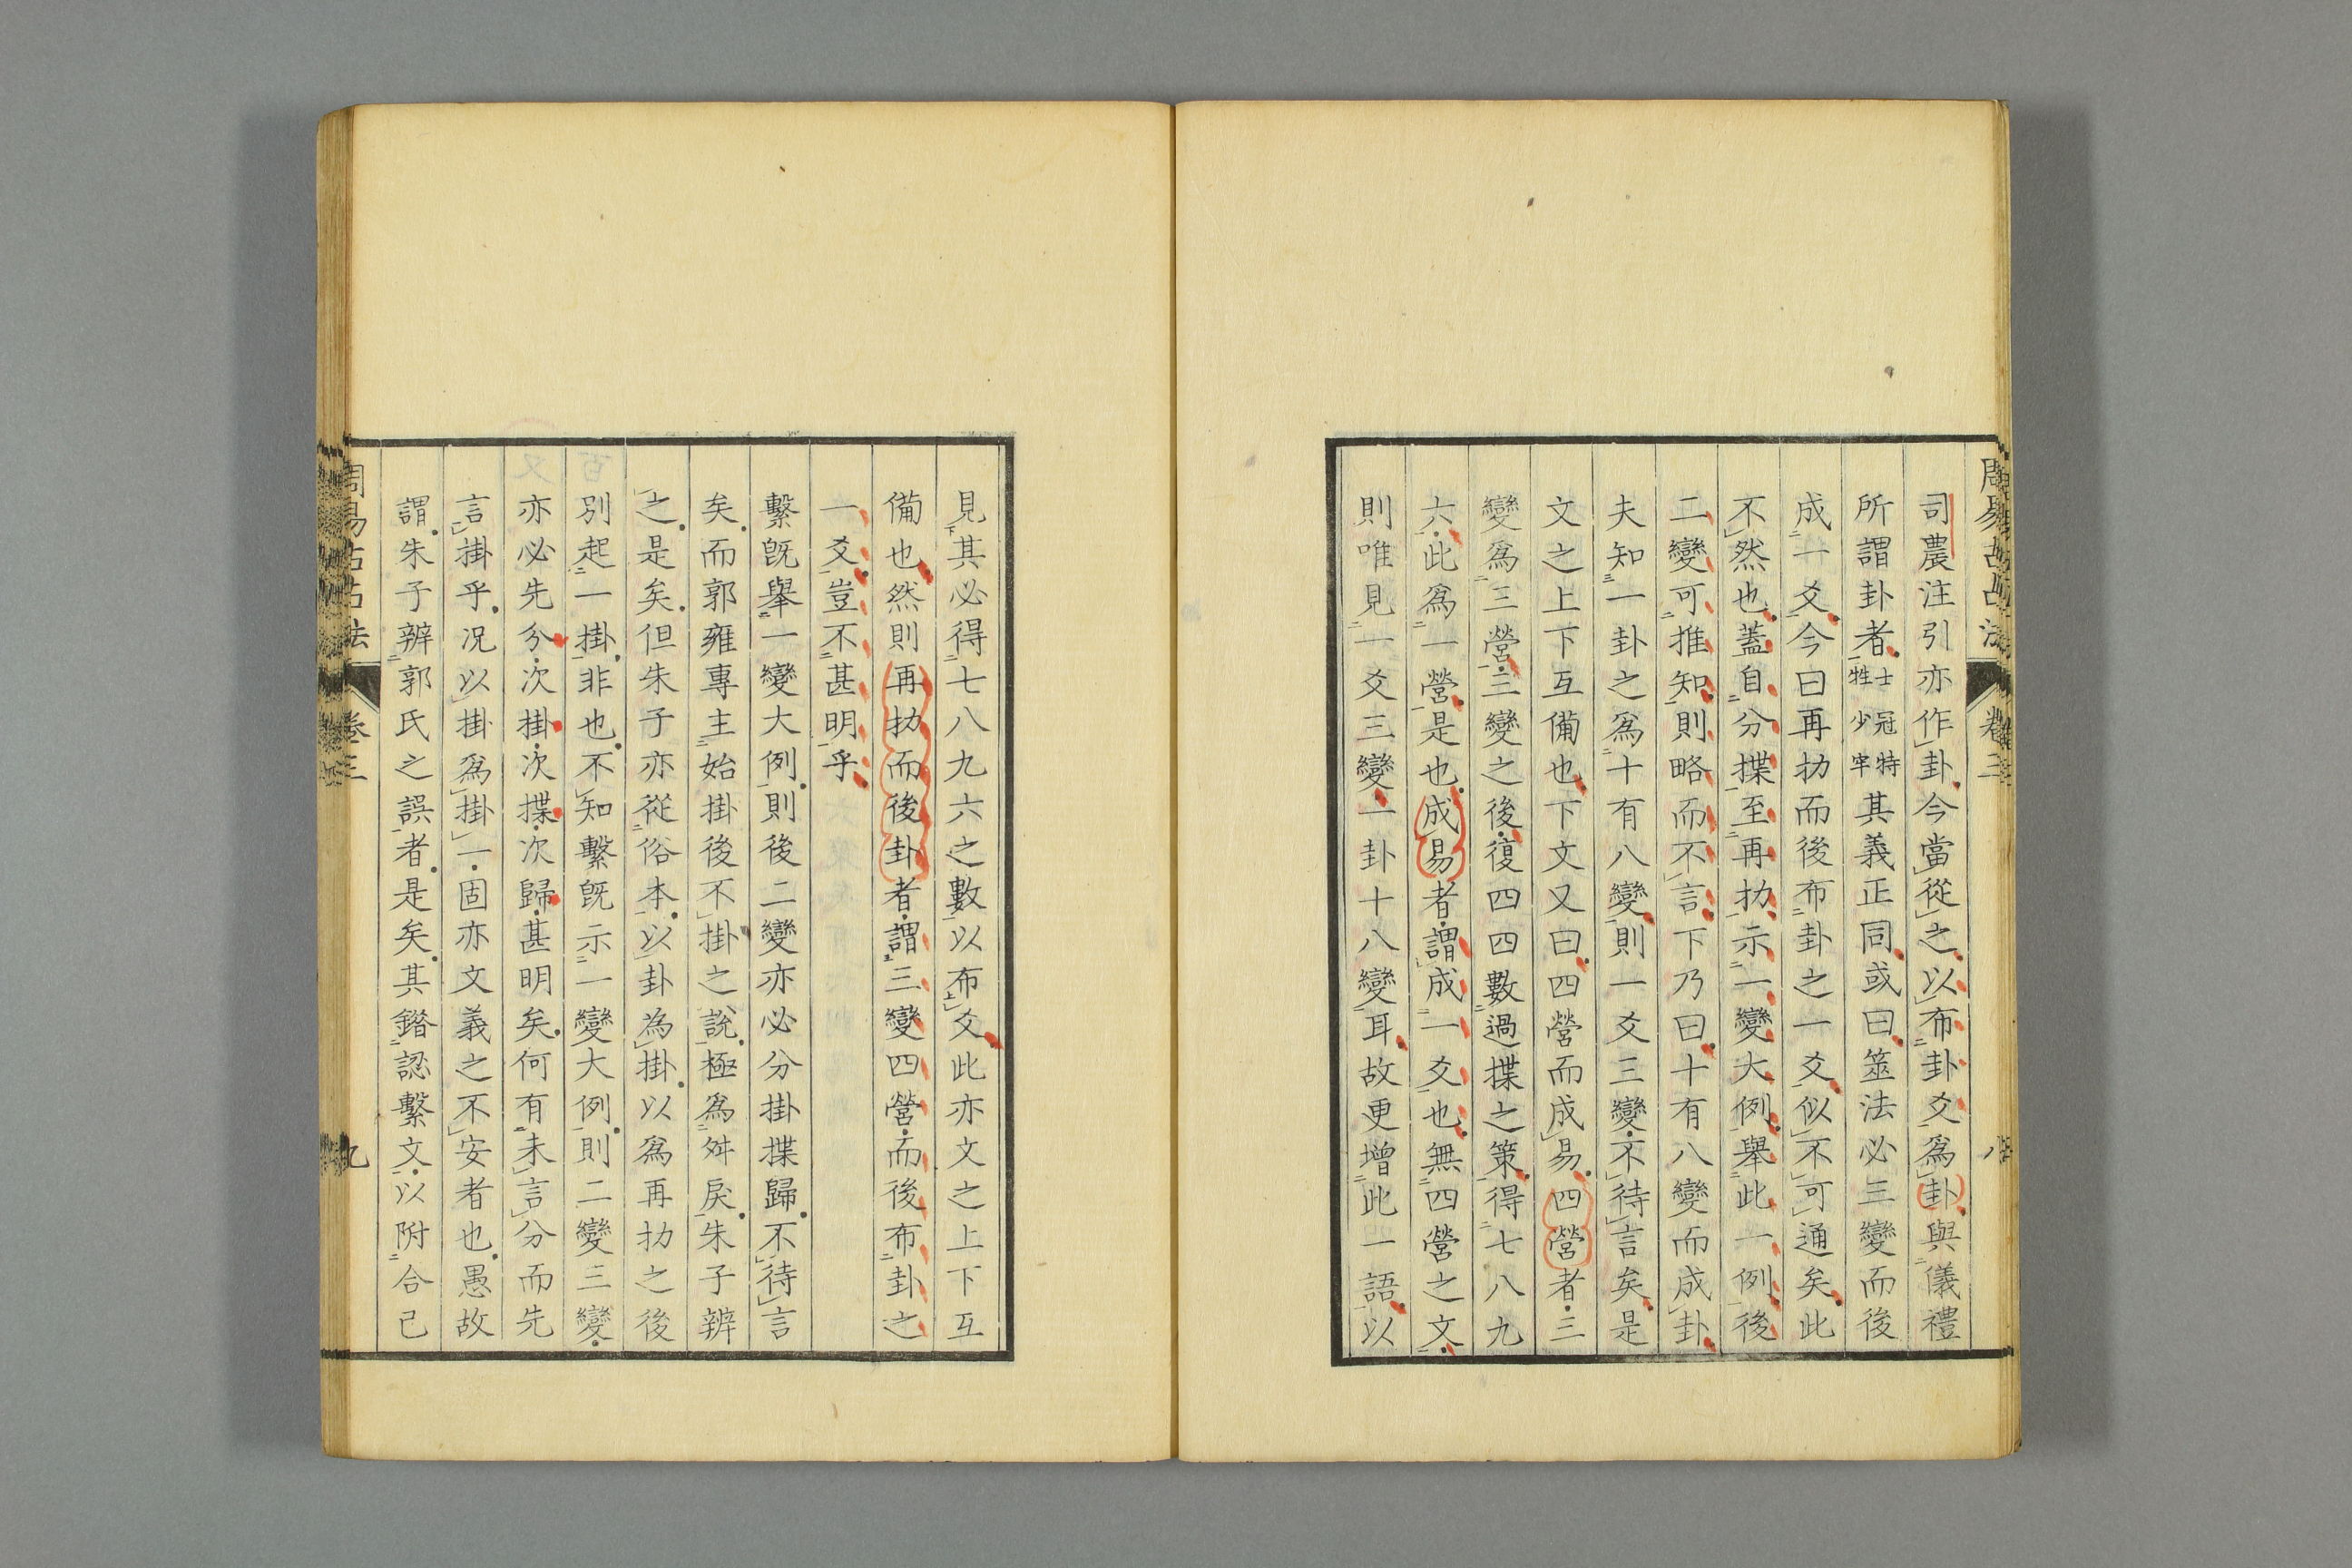 周易古占法 卷三 八
司農注引亦作卦今當從之以布卦爻爲卦與儀禮
所謂卦者士冠特牲少牢其義正同或曰筮法必三變而後
成一爻今曰再扐而後布卦之一爻似不可通矣此
不然也蓋自分揲至再扐示一變大例舉此一例後
二變可推知則略而不言下乃曰十有八變而成卦
夫知一卦之爲十有八變則一爻三變不待言矣是
文之上下互備也下文又曰四營而成易四營者三
變爲三營三變之後復四四數過揲之策得七八九
六此爲一營是也成易者謂成一爻也無四營之文
則唯見一爻三變一卦十八變耳故更增此一語以
見其必得七八九六之數以布爻此亦文之上下互
備也然則再扐而後卦者謂三變四營而後布卦之
一爻豈不甚明乎
繫既舉一變大例則後二變亦必分掛揲歸不待言
矣而郭雍專主始掛後不掛之說極爲舛戾朱子辨
之是矣但朱子亦從俗本以卦為掛以爲再扐之後
別起一掛非也不知繫既示一變大例則二變三變
亦必先分次掛次揲次歸甚明矣何有未言分而先
言掛乎況以掛爲掛一固亦文義之不安者也愚故
謂朱子辨郭氏之誤者是矣其錯認繫文以附合己
周易古占法 卷三 九